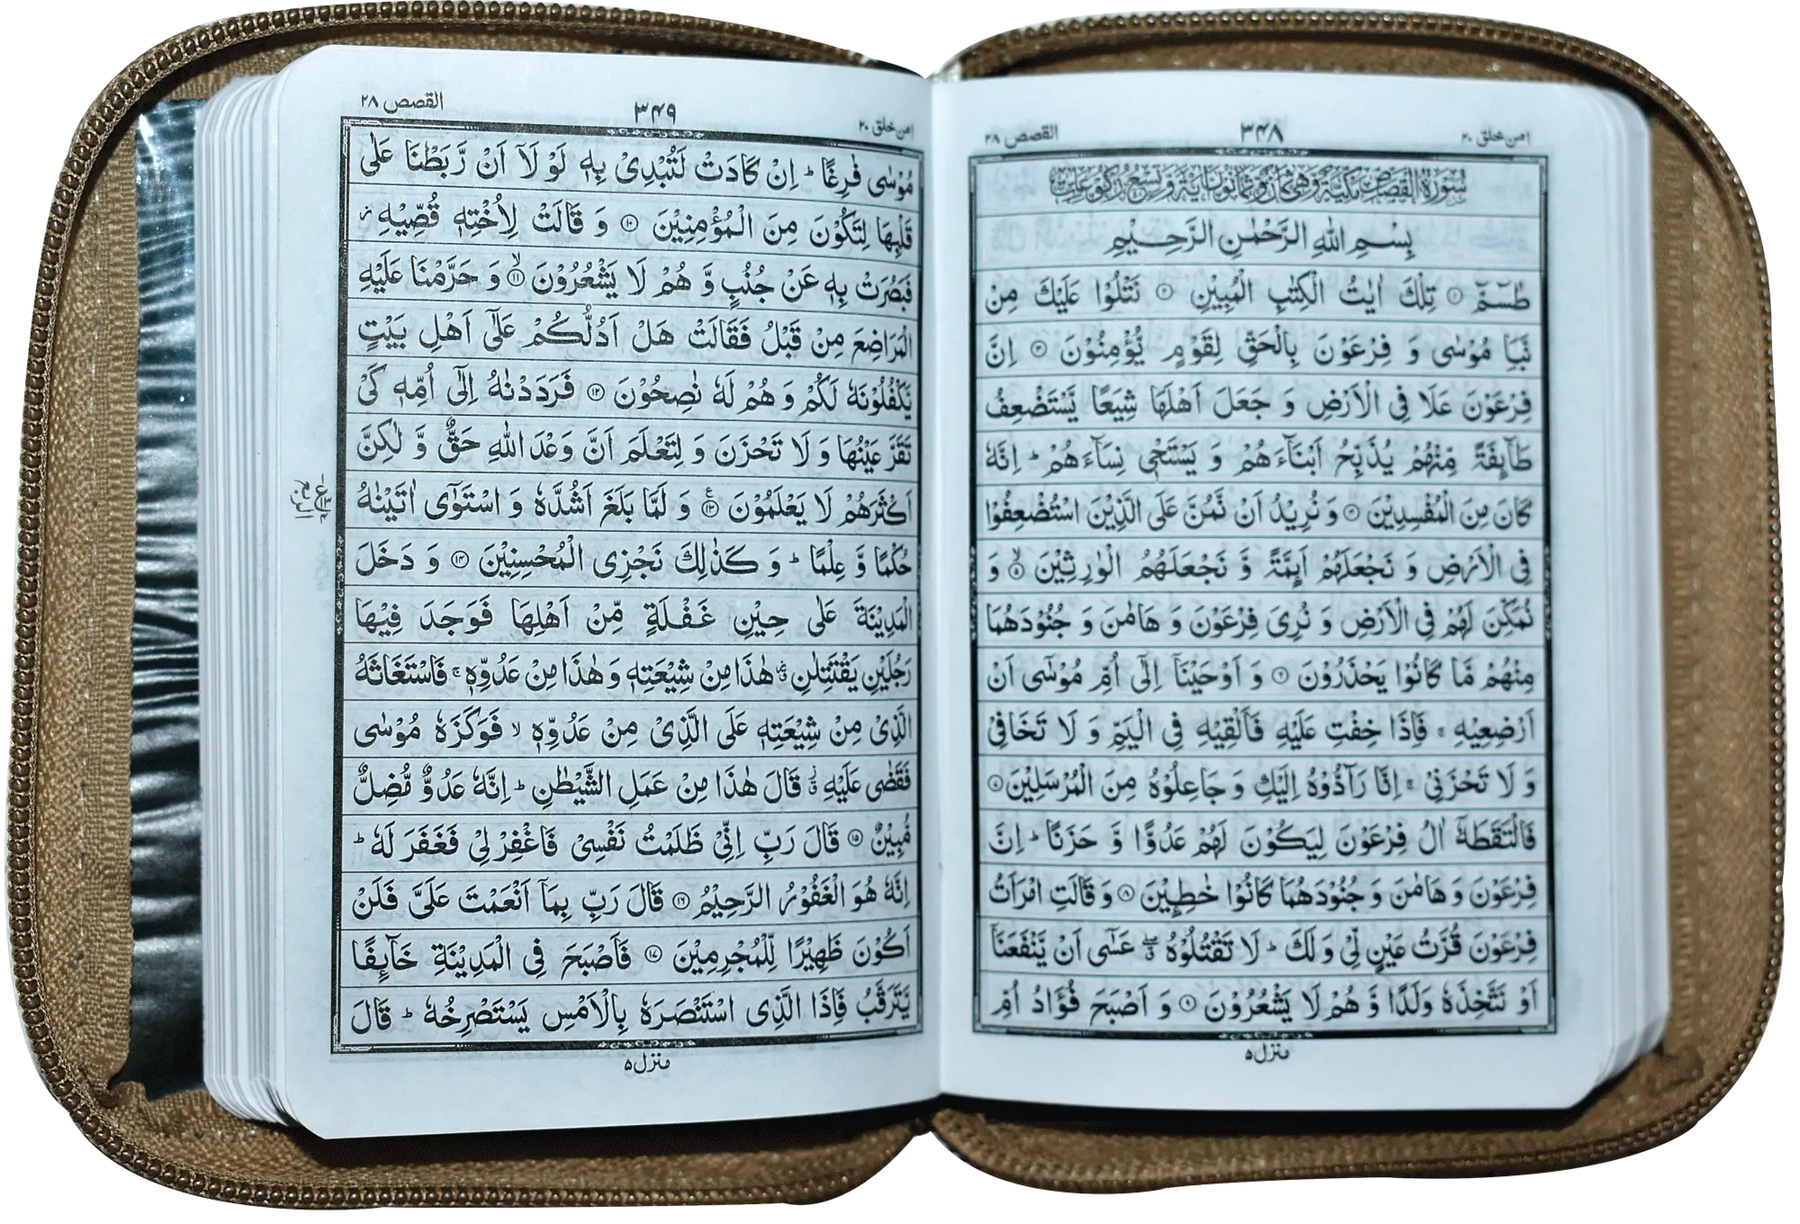 امن خلق ۲۰
۳۴۸
القصص ۲۸
سُوْرَةُ الْقَصَصِ مَكِّيَّةٌ وَّهِيَ ثَمَانٌ وَّثَمَانُوْنَ اٰيَةً وَّتِسْعُ رُكُوْعَاتٍ
بِسْمِ اللّٰهِ الرَّحْمٰنِ الرَّحِيْمِ
طٰسٓمّٓ ۝۱ تِلْكَ اٰيٰتُ الْكِتٰبِ الْمُبِيْنِ ۝۲ نَتْلُوْا عَلَيْكَ مِنْ
نَّبَاِ مُوْسٰى وَ فِرْعَوْنَ بِالْحَقِّ لِقَوْمٍ يُّؤْمِنُوْنَ ۝۳ اِنَّ
فِرْعَوْنَ عَلَا فِى الْاَرْضِ وَ جَعَلَ اَهْلَهَا شِيَعًا يَّسْتَضْعِفُ
طَآىِٕفَةً مِّنْهُمْ يُذَبِّحُ اَبْنَآءَهُمْ وَ يَسْتَحْىٖ نِسَآءَهُمْ ؕ اِنَّهٗ
كَانَ مِنَ الْمُفْسِدِيْنَ ۝۴ وَ نُرِيْدُ اَنْ نَّمُنَّ عَلَى الَّذِيْنَ اسْتُضْعِفُوْا
فِى الْاَرْضِ وَ نَجْعَلَهُمْ اَىِٕمَّةً وَّ نَجْعَلَهُمُ الْوٰرِثِيْنَ ۙ۝۵ وَ
نُمَكِّنَ لَهُمْ فِى الْاَرْضِ وَ نُرِىَ فِرْعَوْنَ وَ هَامٰنَ وَ جُنُوْدَهُمَا
مِنْهُمْ مَّا كَانُوْا يَحْذَرُوْنَ ۝۶ وَ اَوْحَيْنَآ اِلٰٓى اُمِّ مُوْسٰٓى اَنْ
اَرْضِعِيْهِ ۚ فَاِذَا خِفْتِ عَلَيْهِ فَاَلْقِيْهِ فِى الْيَمِّ وَ لَا تَخَافِىْ
وَ لَا تَحْزَنِىْ ۚ اِنَّا رَآدُّوْهُ اِلَيْكِ وَ جَاعِلُوْهُ مِنَ الْمُرْسَلِيْنَ ۝۷
فَالْتَقَطَهٗٓ اٰلُ فِرْعَوْنَ لِيَكُوْنَ لَهُمْ عَدُوًّا وَّ حَزَنًا ؕ اِنَّ
فِرْعَوْنَ وَ هَامٰنَ وَ جُنُوْدَهُمَا كَانُوْا خٰطِـِٕيْنَ ۝۸ وَ قَالَتِ امْرَاَتُ
فِرْعَوْنَ قُرَّتُ عَيْنٍ لِّىْ وَ لَكَ ؕ لَا تَقْتُلُوْهُ ۖۗ عَسٰٓى اَنْ يَّنْفَعَنَاۤ
اَوْ نَتَّخِذَهٗ وَلَدًا وَّ هُمْ لَا يَشْعُرُوْنَ ۝۹ وَ اَصْبَحَ فُؤَادُ اُمِّ
منزل ۵
امن خلق ۲۰
۳۴۹
القصص ۲۸
مُوْسٰى فٰرِغًا ؕ اِنْ كَادَتْ لَتُبْدِىْ بِهٖ لَوْ لَاۤ اَنْ رَّبَطْنَا عَلٰى
قَلْبِهَا لِتَكُوْنَ مِنَ الْمُؤْمِنِيْنَ ۝۱۰ وَ قَالَتْ لِاُخْتِهٖ قُصِّيْهِ ؗ
فَبَصُرَتْ بِهٖ عَنْ جُنُبٍ وَّ هُمْ لَا يَشْعُرُوْنَ ۙ۝۱۱ وَ حَرَّمْنَا عَلَيْهِ
الْمَرَاضِعَ مِنْ قَبْلُ فَقَالَتْ هَلْ اَدُلُّكُمْ عَلٰٓى اَهْلِ بَيْتٍ
يَّكْفُلُوْنَهٗ لَكُمْ وَ هُمْ لَهٗ نٰصِحُوْنَ ۝۱۲ فَرَدَدْنٰهُ اِلٰٓى اُمِّهٖ كَىْ
تَقَرَّ عَيْنُهَا وَ لَا تَحْزَنَ وَ لِتَعْلَمَ اَنَّ وَعْدَ اللّٰهِ حَقٌّ وَّ لٰكِنَّ
اَكْثَرَهُمْ لَا يَعْلَمُوْنَ ۝۱۳ وَ لَمَّا بَلَغَ اَشُدَّهٗ وَ اسْتَوٰٓى اٰتَيْنٰهُ
حُكْمًا وَّ عِلْمًا ؕ وَ كَذٰلِكَ نَجْزِى الْمُحْسِنِيْنَ ۝۱۴ وَ دَخَلَ
الْمَدِيْنَةَ عَلٰى حِيْنِ غَفْلَةٍ مِّنْ اَهْلِهَا فَوَجَدَ فِيْهَا
رَجُلَيْنِ يَقْتَتِلٰنِ ؗۗ هٰذَا مِنْ شِيْعَتِهٖ وَ هٰذَا مِنْ عَدُوِّهٖ ۚ فَاسْتَغَاثَهُ
الَّذِىْ مِنْ شِيْعَتِهٖ عَلَى الَّذِىْ مِنْ عَدُوِّهٖ ۙ فَوَكَزَهٗ مُوْسٰى
فَقَضٰى عَلَيْهِ ؗ قَالَ هٰذَا مِنْ عَمَلِ الشَّيْطٰنِ ؕ اِنَّهٗ عَدُوٌّ مُّضِلٌّ
مُّبِيْنٌ ۝۱۵ قَالَ رَبِّ اِنِّىْ ظَلَمْتُ نَفْسِىْ فَاغْفِرْ لِىْ فَغَفَرَ لَهٗ ؕ
اِنَّهٗ هُوَ الْغَفُوْرُ الرَّحِيْمُ ۝۱۶ قَالَ رَبِّ بِمَاۤ اَنْعَمْتَ عَلَىَّ فَلَنْ
اَكُوْنَ ظَهِيْرًا لِّلْمُجْرِمِيْنَ ۝۱۷ فَاَصْبَحَ فِى الْمَدِيْنَةِ خَآىِٕفًا
يَّتَرَقَّبُ فَاِذَا الَّذِى اسْتَنْصَرَهٗ بِالْاَمْسِ يَسْتَصْرِخُهٗ ؕ قَالَ
الربع
منزل ۵